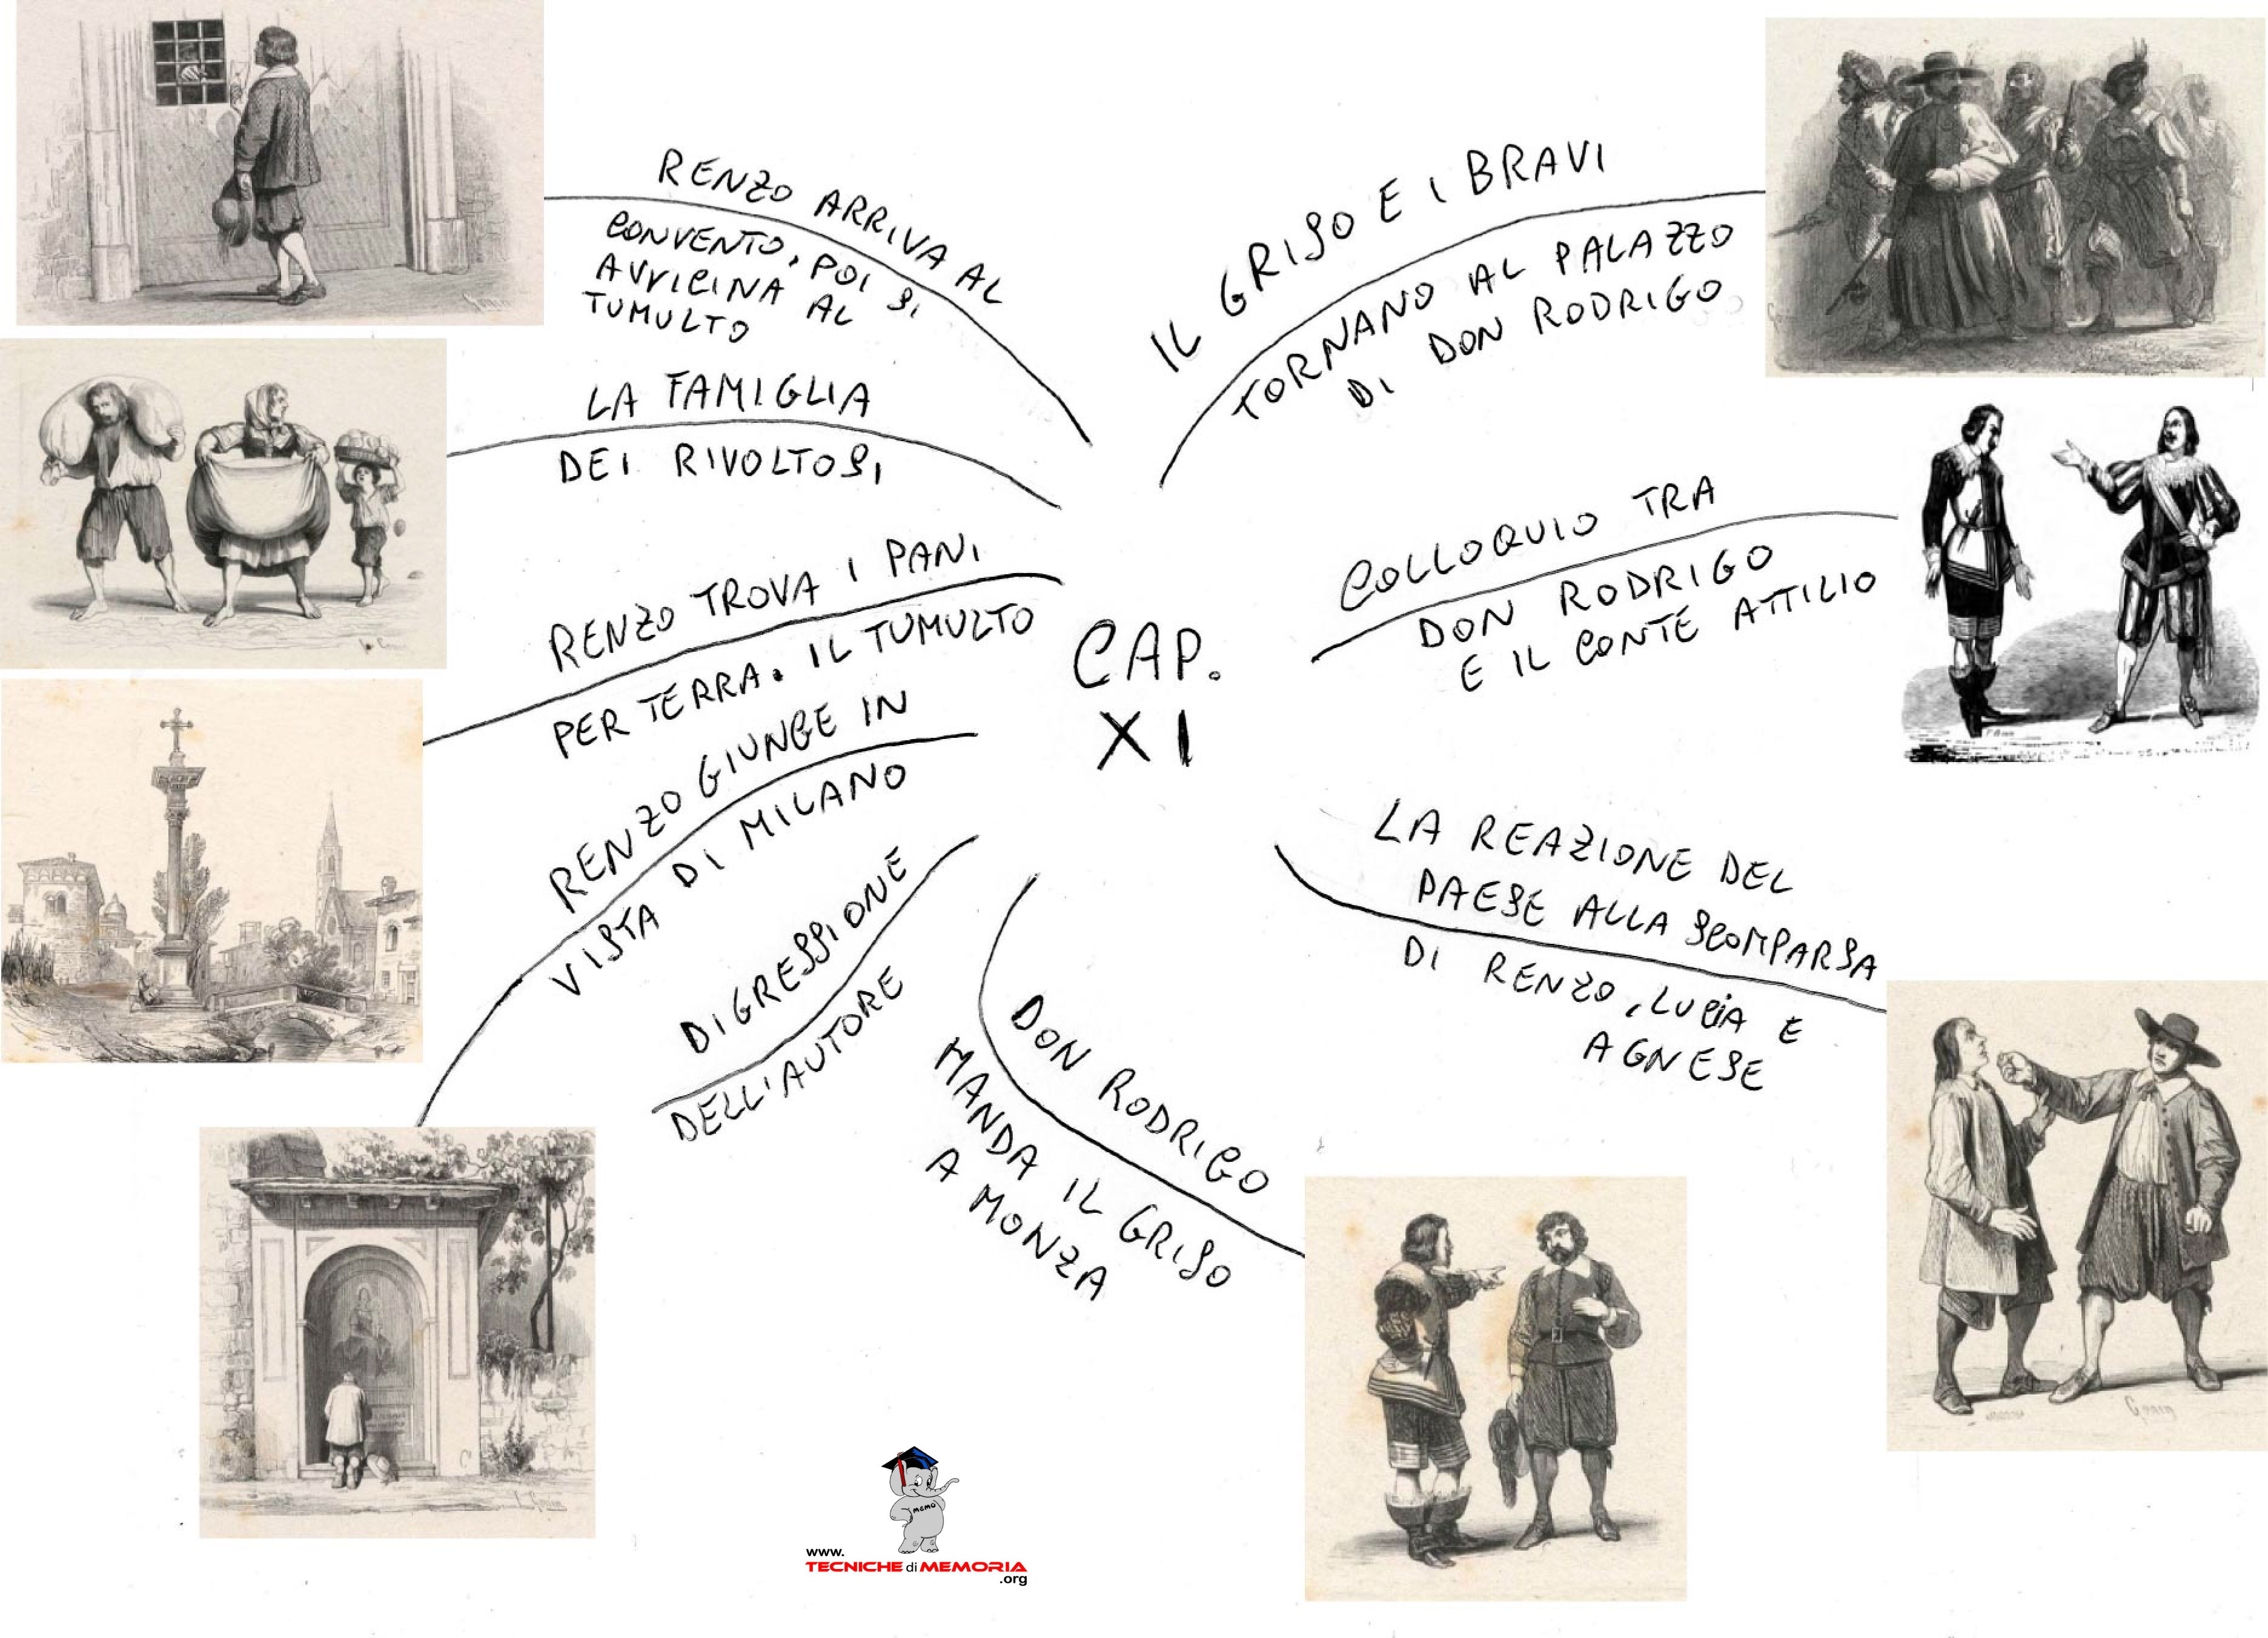 CAP.
XI
IL GRISO E I BRAVI
TORNANO AL PALAZZO
DI DON RODRIGO
COLLOQUIO TRA
DON RODRIGO
E IL CONTE ATTILIO
LA REAZIONE DEL
PAESE ALLA SCOMPARSA
DI RENZO, LUCIA E
AGNESE
DON RODRIGO
MANDA IL GRISO
A MONZA
DIGRESSIONE
DELL'AUTORE
RENZO GIUNGE IN
VISTA DI MILANO
RENZO TROVA I PANI
PER TERRA. IL TUMULTO
LA FAMIGLIA
DEI RIVOLTOSI
RENZO ARRIVA AL
CONVENTO, POI SI
AVVICINA AL
TUMULTO
MEMO
www.
TECNICHE di MEMORIA
.org